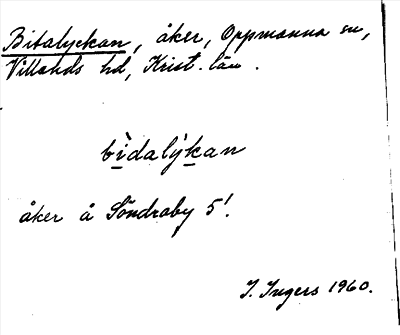 Bitalyckan, åker, Oppmanna sn,
Villands hd, Krist. län.
bìdalýkan
åker å Söndraby 5¹.
I. Ingers 1960.